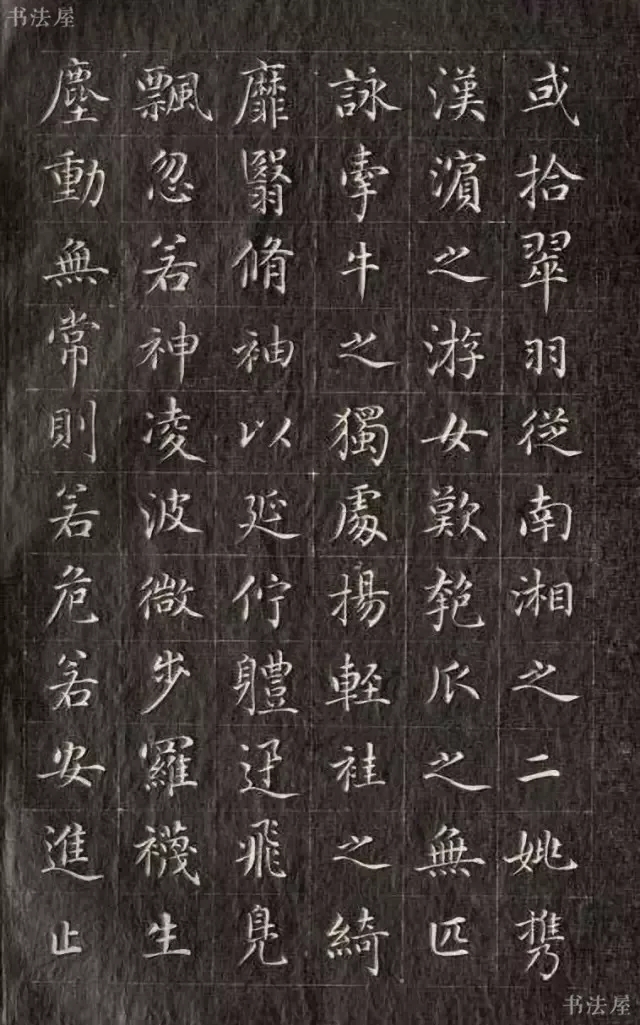 书法屋
或拾翠羽從南湘之二姚携
漢濵之游女歎匏瓜之無匹
詠牽牛之獨處揚輕袿之綺
靡翳脩袖以延佇體迅飛鳧
飄忽若神凌波微步羅襪生
塵動無常則若危若安進止
书法屋